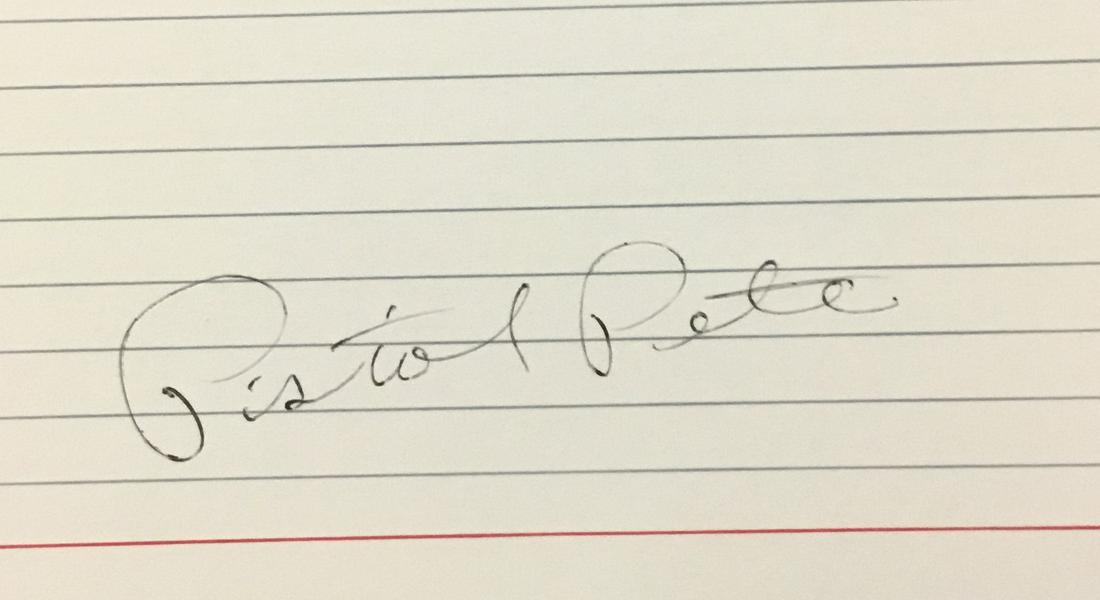 Pistol Pete